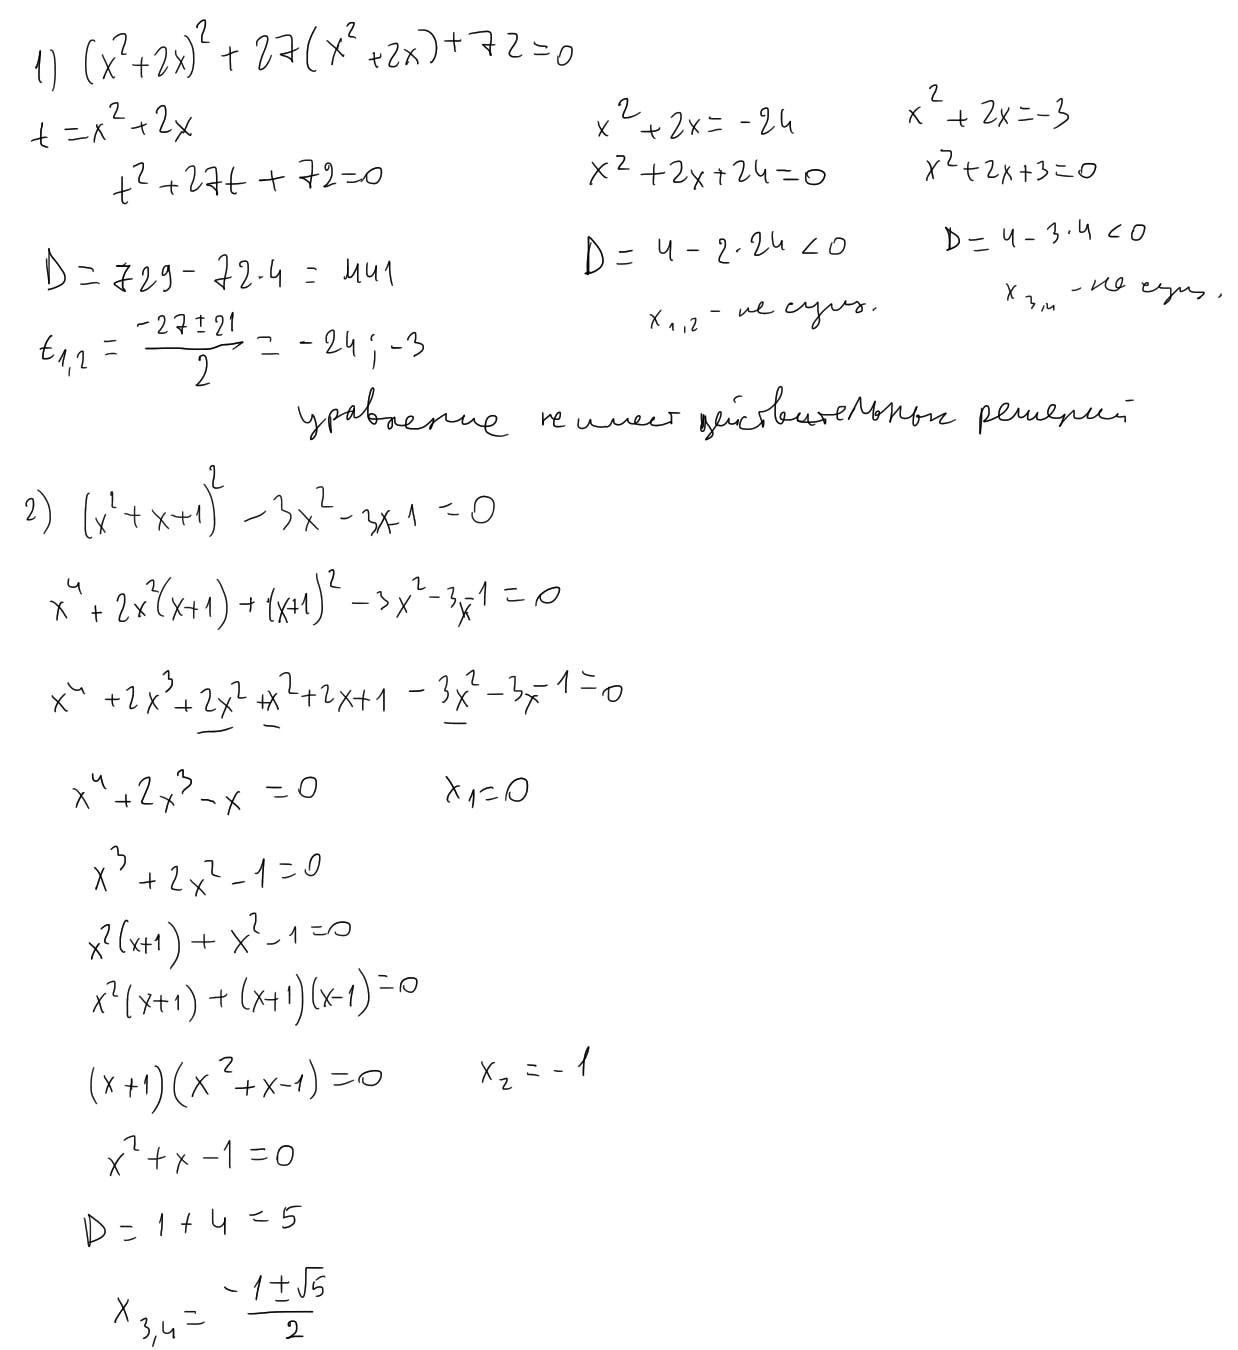 1) (x²+2x)² + 27(x²+2x)+72=0
t = x²+2x
t²+27t+72=0
D = 729 - 72·4 = 441
t₁,₂ = (-27±21)/2 = -24; -3
x²+2x = -24
x²+2x+24=0
D = 4 - 2·24 <0
x₁,₂ - не сущ.
x²+2x=-3
x²+2x+3=0
D = 4 - 3·4 <0
x₃,₄ - не сущ.
уравнение не имеет действительных решений
2) (x²+x+1)² - 3x² - 3x-1 = 0
x⁴ + 2x²(x+1) + (x+1)² - 3x² - 3x-1 = 0
x⁴ + 2x³ + 2x² + x² + 2x+1 - 3x² - 3x - 1 = 0
x⁴ + 2x³ - x = 0 x₁=0
x³ + 2x² - 1 = 0
x²(x+1) + x² - 1 = 0
x²(x+1) + (x+1)(x-1) = 0
(x+1)(x²+x-1) = 0 x₂ = -1
x²+x-1=0
D = 1+4 = 5
x₃,₄ = (-1±√5)/2